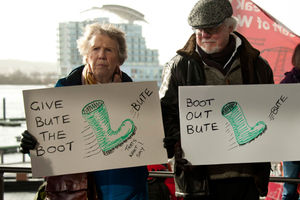 GIVE
BUTE
THE
BOOT
BUTE
THAT'S
WHAT I
SAY!
BOOT
OUT
BUTE
BUTE